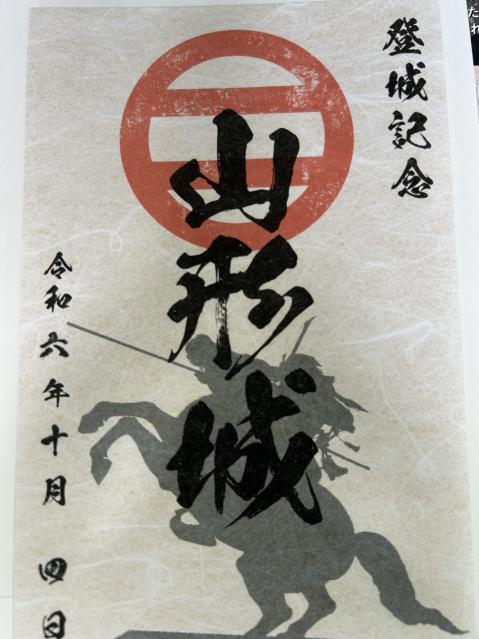 登城記念
山形城
令和六年十月 四日